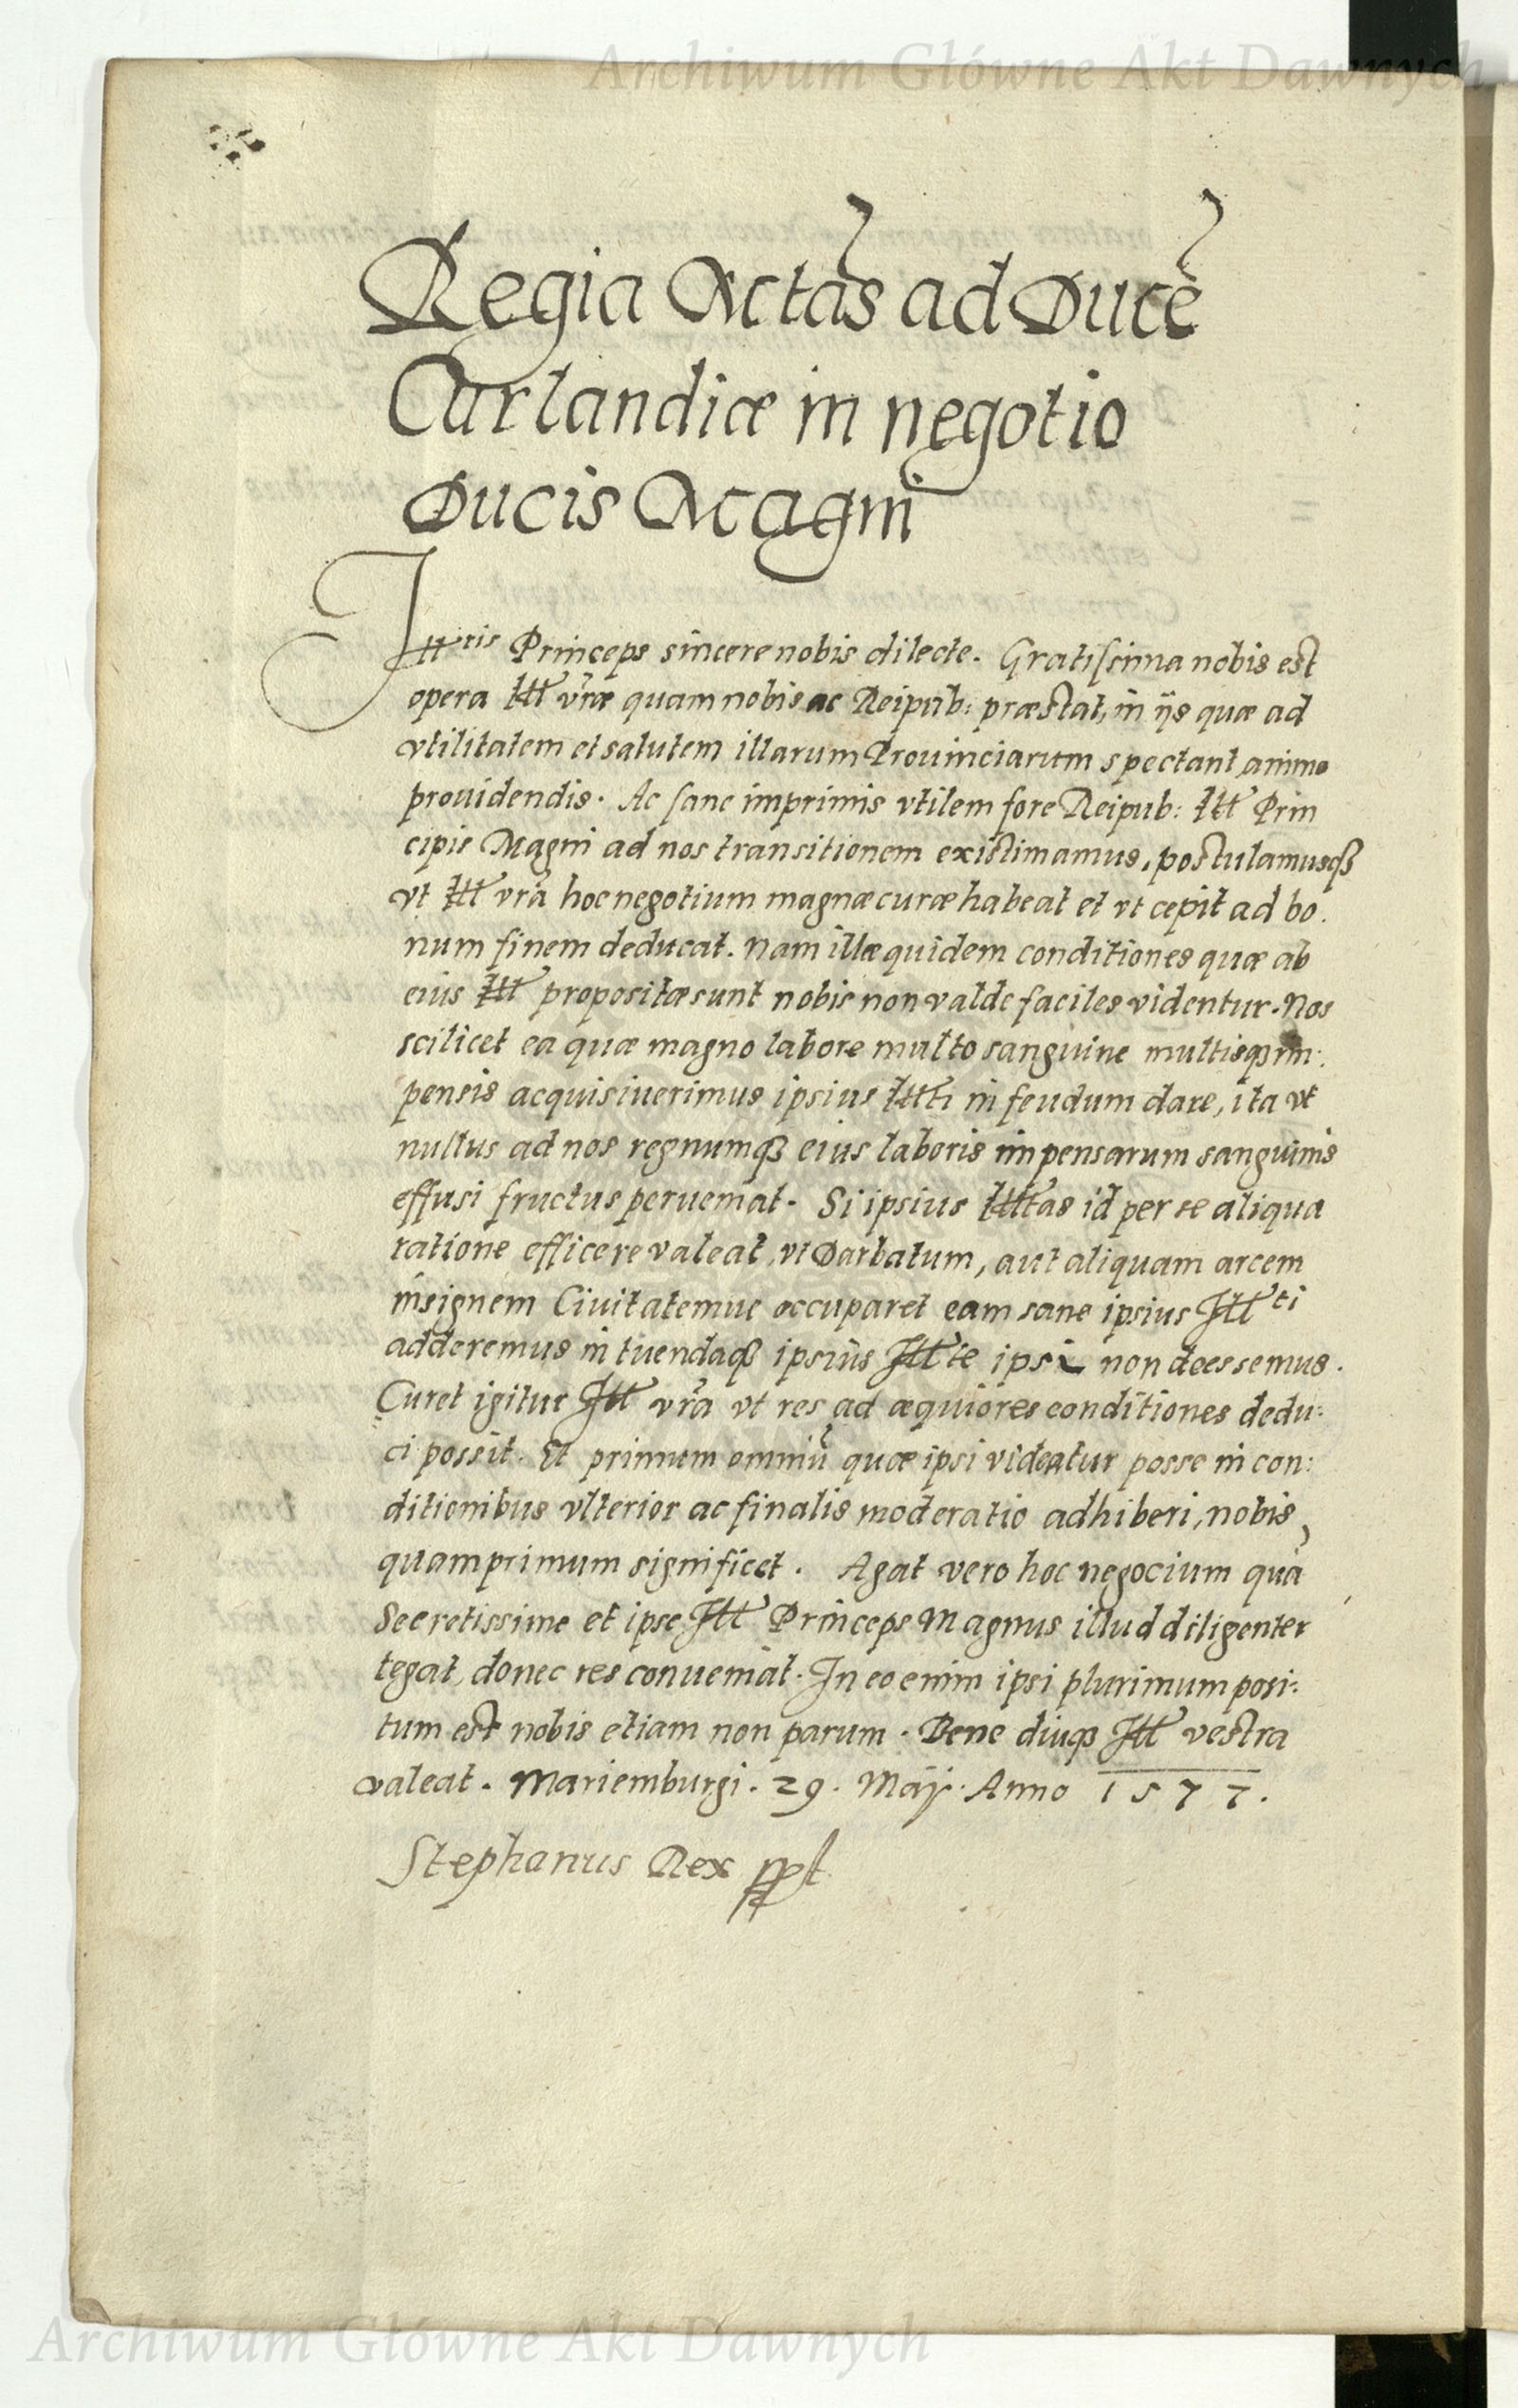 Archiwum Główne Akt Dawnych
Regia Mctas ad Ducē
Curlandiæ in negotio
Ducis Magni
Illris Princeps sincere nobis dilecte. Gratissima nobis est
opera Ill vræ quam nobis ac Reipub: præstat, in ijs quæ ad
vtilitatem et salutem illarum Prouinciarum spectant animo
prouidendis. Ac sane imprimis vtilem fore Reipub: Ill Prin
cipis Magni ad nos transitionem existimamus, postulamusqȝ
vt Ill vrā hoc negotium magnæ curæ habeat et vt cepit ad bo.
num finem deducat. Nam illæ quidem conditiones quæ ab
eius Ill propositæ sunt nobis non valde faciles videntur. Nos
scilicet ea quæ magno labore multo sanguine multisqȝ im:
pensis acquisiuerimus ipsius Illti in feudum dare, ita vt
nullus ad nos regnumqȝ eius laboris impensarum sanguinis
effusi fructus perueniat. Si ipsius Illtas id per se aliqua
ratione efficere valeat, vt Darbatum, aut aliquam arcem
insignem Ciuitatemue occuparet eam sane ipsius Illti
adderemus in tuendaqȝ ipsius Illte ipsi non deessemus.
Curet igitur Ill vrā vt res ad æquiores conditiones dedu:
ci possit. Et primum omniū quæ ipsi videatur posse in con:
ditionibus vlterior ac finalis moderatio adhiberi, nobis
quamprimum significet. Agat vero hoc negocium quā
Secretissime et ipse Ill Princeps Magnus illud diligenter
tegat, donec res conueniat. In eo enim ipsi plurimum posi:
tum est nobis etiam non parum. Bene diuqȝ Ill vestra
valeat. Mariemburgi. 29. Maij. Anno 1577.
Stephanus Rex sspt
Archiwum Główne Akt Dawnych